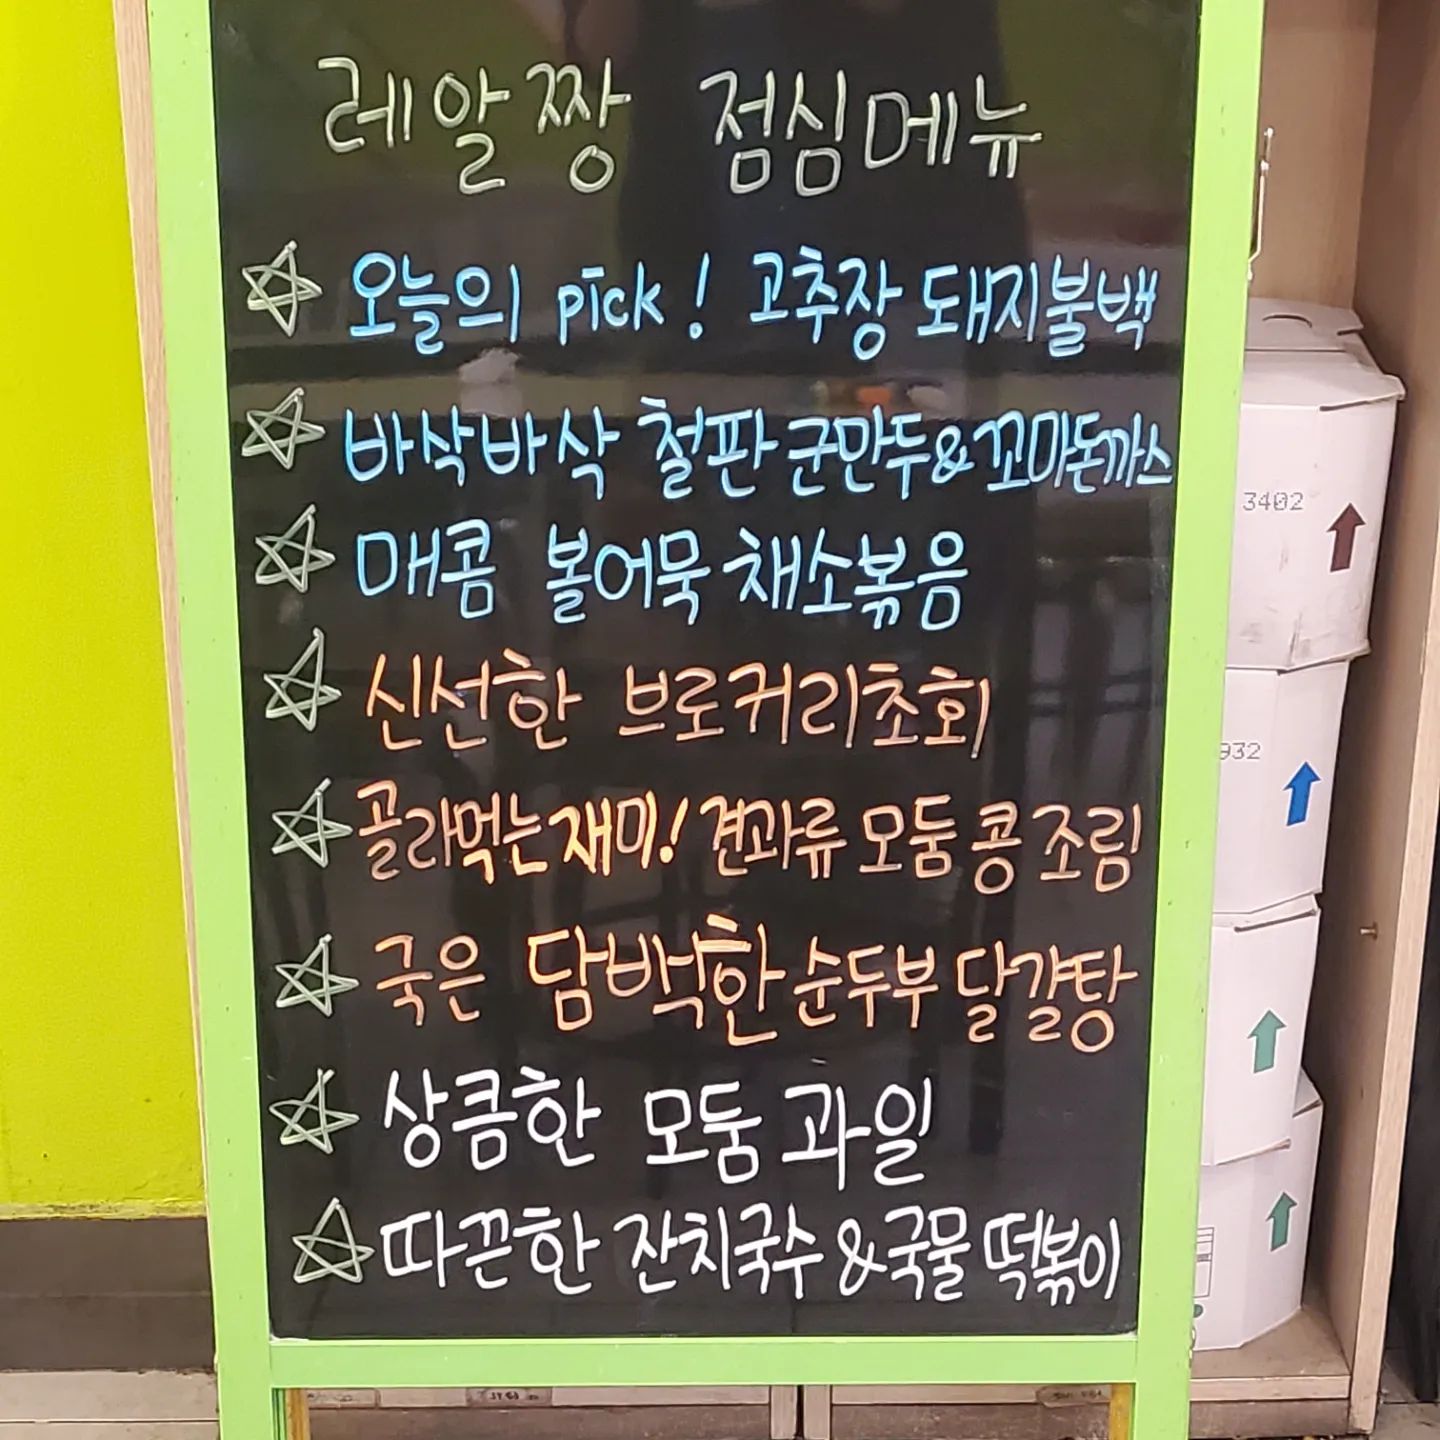 레알짱 점심메뉴
오늘의 pick! 고추장 돼지불백
바삭바삭 철판 군만두&꼬마돈까스
매콤 볼어묵 채소볶음
신선한 브로커리초회
골라먹는재미! 견과류 모둠 콩 조림
국은 담백한 순두부 달걀탕
상큼한 모둠 과일
따끈한 잔치국수 &국물 떡볶이
3402
932